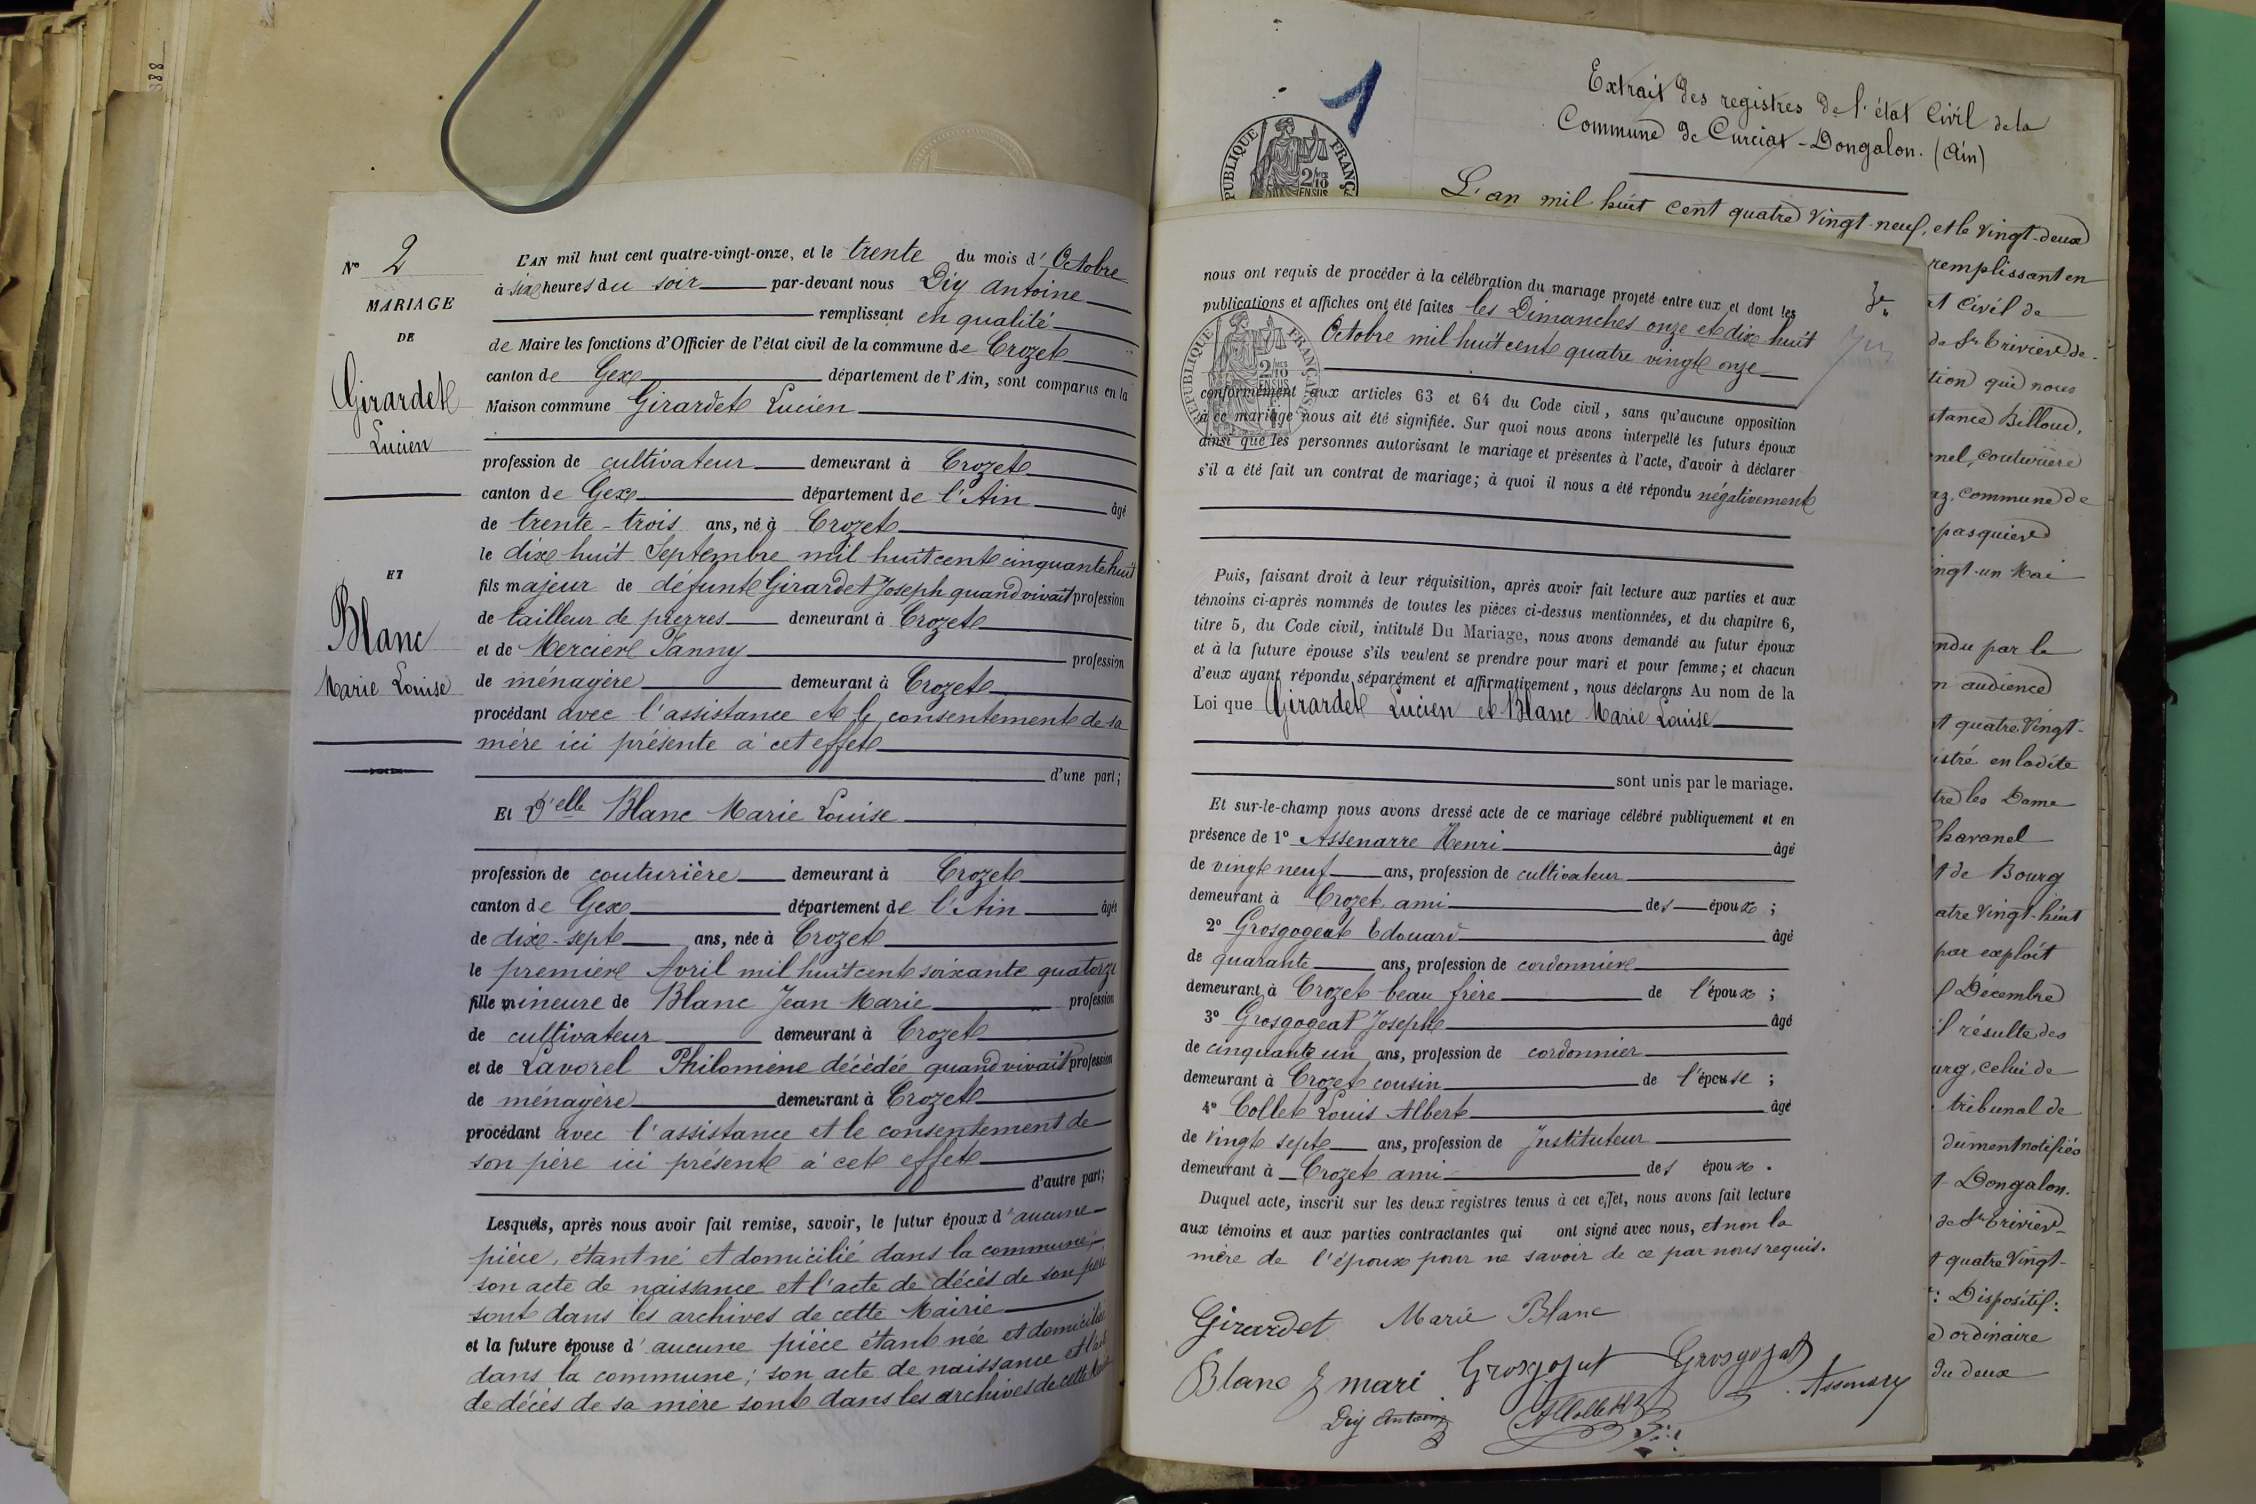 888
Nº 2
MARIAGE
DE
Girardet
Lucien
ET
Blanc
Marie Louise
L'AN mil huit cent quatre-vingt-onze, et le trente du mois d'Octobre
à six heures du soir par-devant nous Diy Antoine
remplissant en qualité
de Maire les fonctions d'Officier de l'état civil de la commune de Crozet
canton de Gex département de l'Ain, sont comparus en la
Maison commune Girardet Lucien
profession de cultivateur demeurant à Crozet
canton de Gex département de l'Ain âgé
de trente-trois ans, né à Crozet
le dix huit Septembre mil huit cent cinquante huit
fils majeur de défunt Girardet Joseph quand vivait profession
de tailleur de pierres demeurant à Crozet
et de Mercier Fanny profession
de ménagère demeurant à Crozet
procédant avec l'assistance et le consentement de sa
mère ici présente à cet effet
d'une part;
Et Delle Blanc Marie Louise
profession de couturière demeurant à Crozet
canton de Gex département de l'Ain âgée
de dix-sept ans, née à Crozet
le premier Avril mil huit cent soixante quatorze
fille mineure de Blanc Jean Marie profession
de cultivateur demeurant à Crozet
et de Lavorel Philomène décédée quand vivait profession
de ménagère demeurant à Crozet
procédant avec l'assistance et le consentement de
son père ici présent à cet effet
d'autre part;
Lesquels, après nous avoir fait remise, savoir, le futur époux d'aucune
pièce, étant né et domicilié dans la commune;
son acte de naissance et l'acte de décès de son père
sont dans les archives de cette Mairie
et la future épouse d'aucune pièce étant née et domiciliée
dans la commune; son acte de naissance et l'acte
de décès de sa mère sont dans les archives de cette
1
Extrait des registres de l'état Civil de la
Commune de Curciat-Dongalon. (Ain)
L'an mil huit cent quatre vingt-neuf, et le vingt-deux
RÉPUBLIQUE FRANÇ
2/10
EN SUS
nous ont requis de procéder à la célébration du mariage projeté entre eux et dont les
publications et affiches ont été faites les Dimanches onze et dix huit
Octobre mil huit cent quatre vingt onze
RÉPUBLIQUE FRANÇAISE
2/10
EN SUS
conformément aux articles 63 et 64 du Code civil, sans qu'aucune opposition
à ce mariage nous ait été signifiée. Sur quoi nous avons interpellé les futurs époux
ainsi que les personnes autorisant le mariage et présentes à l'acte, d'avoir à déclarer
s'il a été fait un contrat de mariage; à quoi il nous a été répondu négativement
Puis, faisant droit à leur réquisition, après avoir fait lecture aux parties et aux
témoins ci-après nommés de toutes les pièces ci-dessus mentionnées, et du chapitre 6,
titre 5, du Code civil, intitulé Du Mariage, nous avons demandé au futur époux
et à la future épouse s'ils veulent se prendre pour mari et pour femme; et chacun
d'eux ayant répondu séparément et affirmativement, nous déclarons Au nom de la
Loi que Girardet Lucien et Blanc Marie Louise
sont unis par le mariage.
Et sur-le-champ nous avons dressé acte de ce mariage célébré publiquement et en
présence de 1º Assenarre Henri âgé
de vingt neuf ans, profession de cultivateur
demeurant à Crozet ami des époux;
2º Grosgogeat Edouard âgé
de quarante ans, profession de cordonnier
demeurant à Crozet beau frère de l'époux;
3º Grosgogeat Joseph âgé
de cinquante un ans, profession de cordonnier
demeurant à Crozet cousin de l'épouse;
4º Collet Louis Albert âgé
de vingt sept ans, profession de Instituteur
demeurant à Crozet ami des époux.
Duquel acte, inscrit sur les deux registres tenus à cet effet, nous avons fait lecture
aux témoins et aux parties contractantes qui ont signé avec nous, et non la
mère de l'époux pour ne savoir de ce par nous requis.
Girardet Marie Blanc
Blanc J mari Grosgojat Grosgojat
Assenary
Diy Antoine ACollet
remplissant en
Civil de
de St Trivier de
tion qui nous
stance Billoud,
nel, couturière
az, commune de
pasquier
ingt-un Mai
ndu par le
audience
quatre Vingt-
istré en ladite
tre les Dame
havanel
de Bourg
atre Vingt-huit
par exploit
Décembre
il résulte des
urg, celui de
tribunal de
dûment notifiés
Dongalon.
de St Trivier
quatre Vingt-
: Dispositif:
ordinaire
du deux